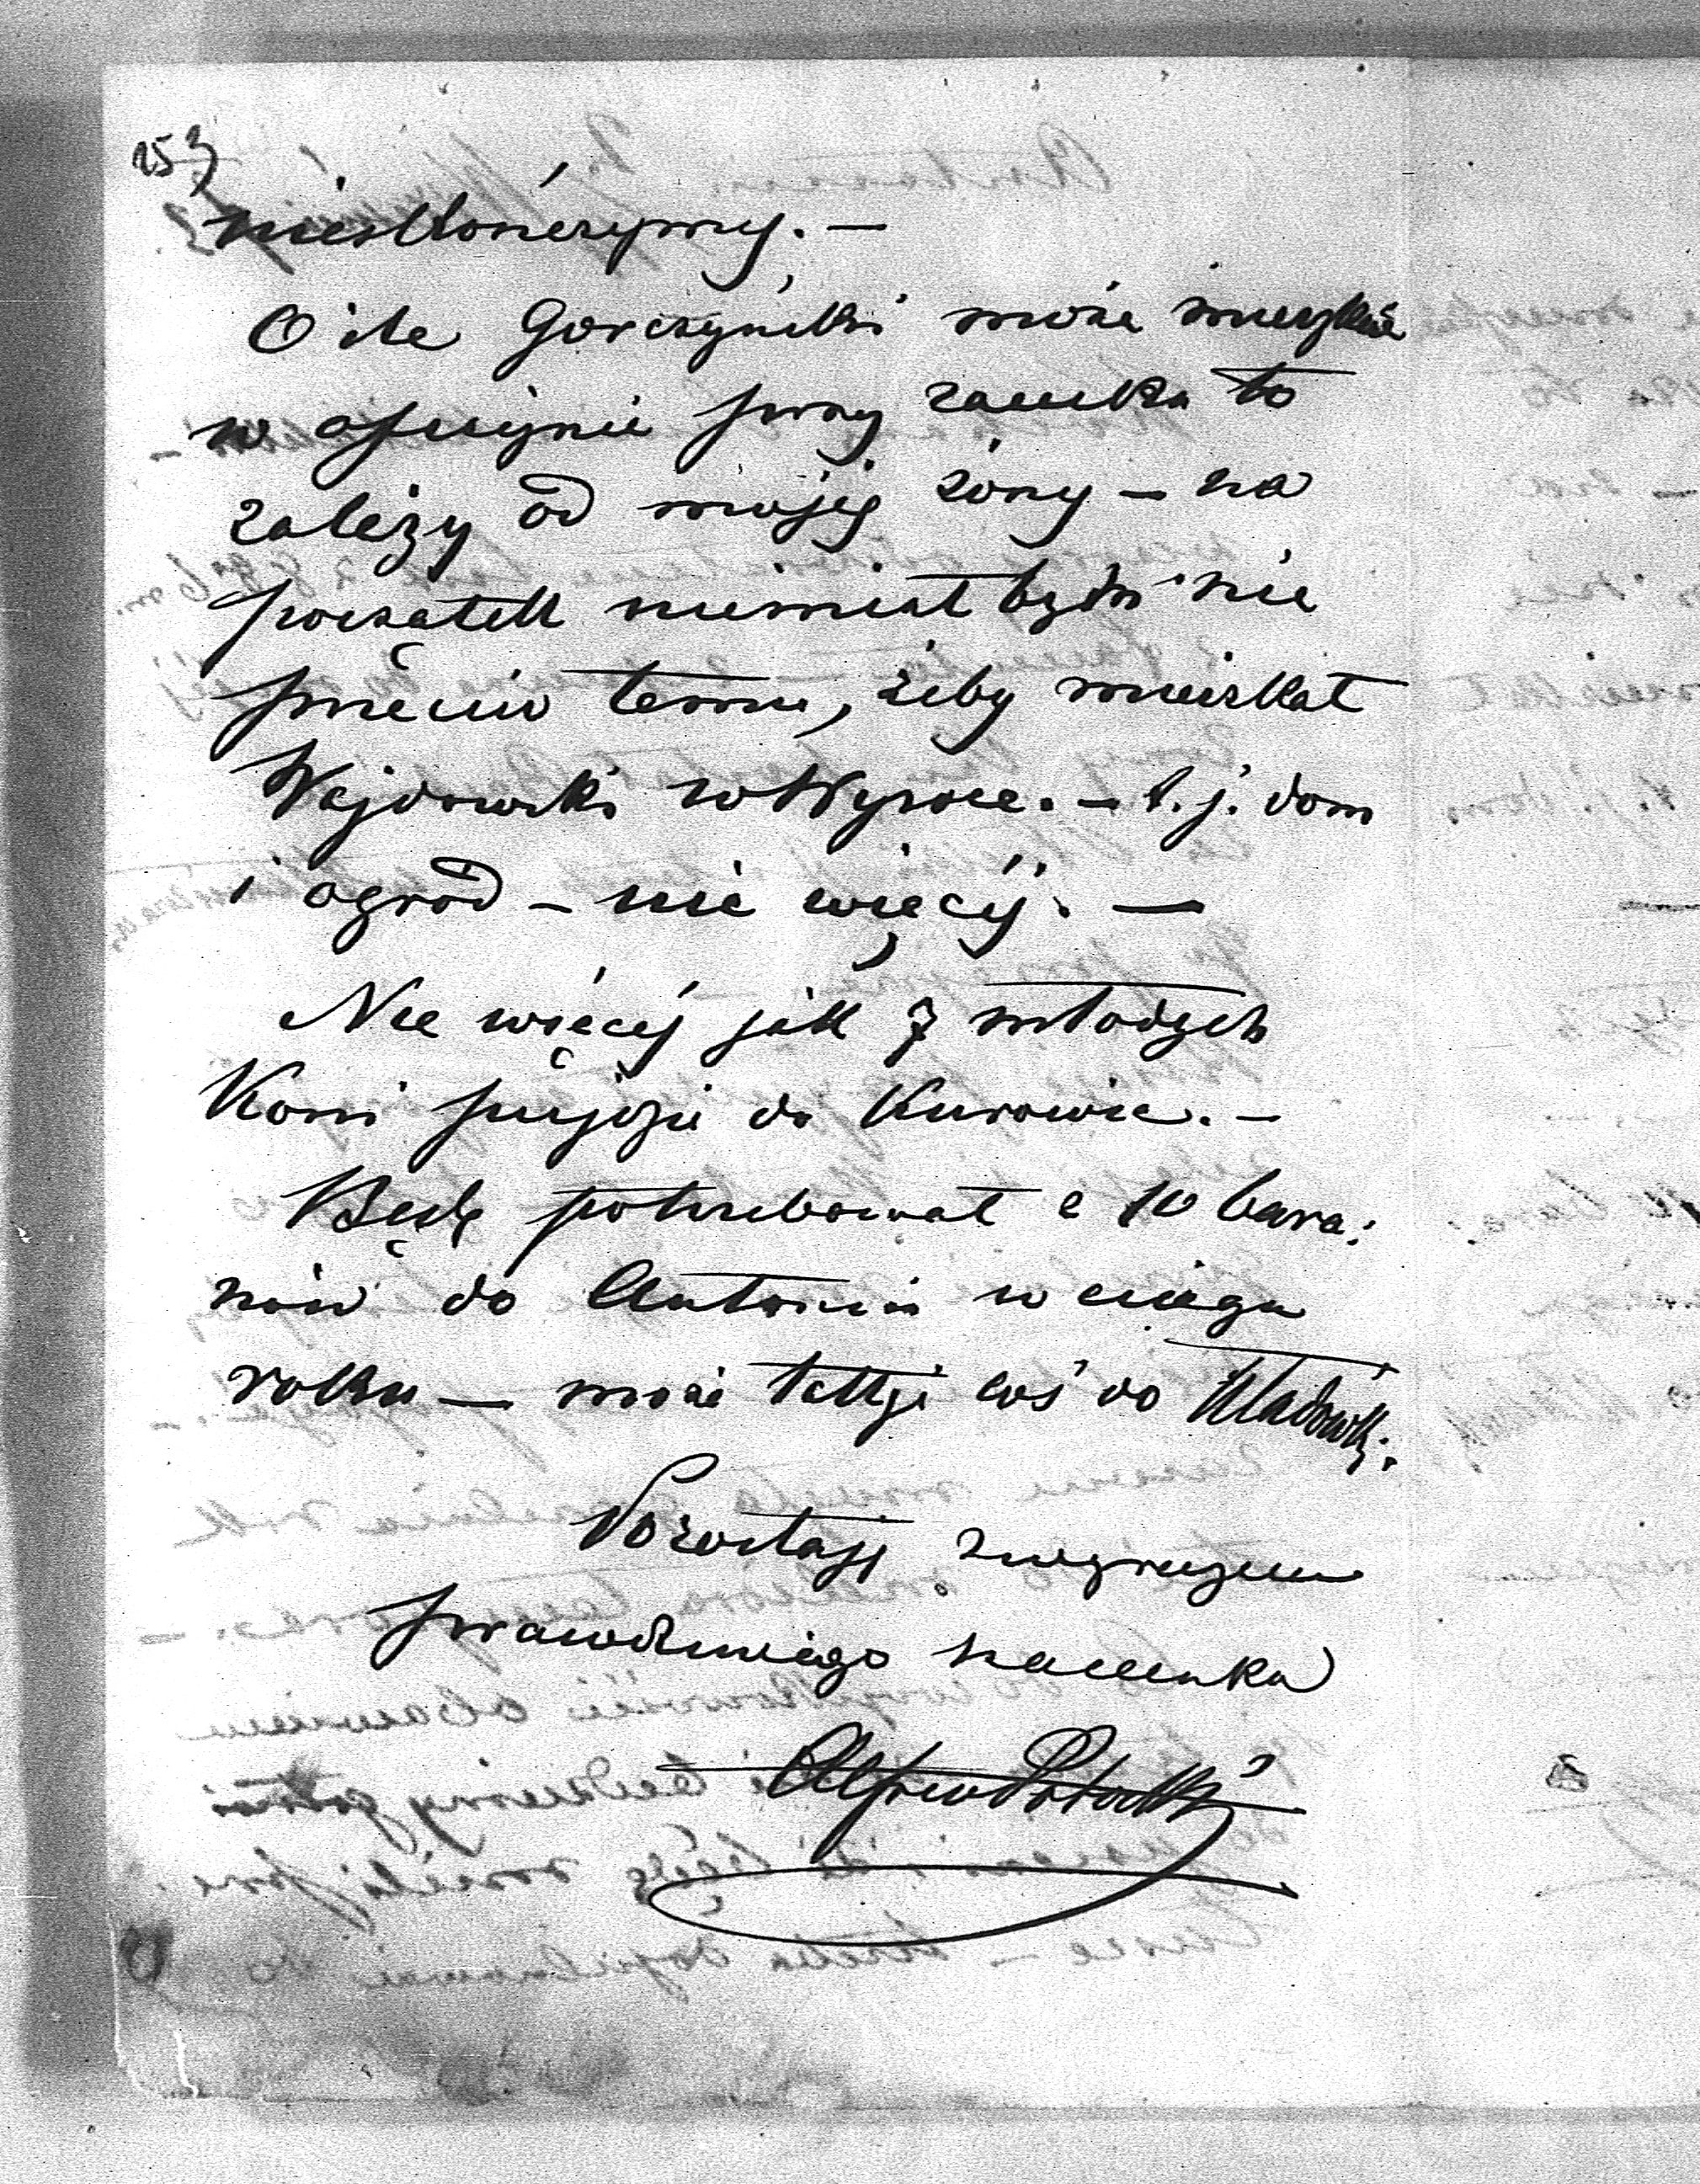 153
nieskończymy. —
O ile Gorczyński może mieszkać
w oficynie przy zamku to
zależy od mojej żony — na
początek niemiał bym nic
przeciw temu, żeby mieszkał
Wajdowski w Wysoce. — t. j. dom
i ogród — nic więcéj. —
Nie więcéj jak 7 młodych
Koni pujdzie do Kurowic. —
Będę potrzebował e 10 bara:
nów do Antonin w ciągu
roku — może także coś do
Pozostaję z wyrazem
prawdziwego szacunku
Alfred Potocki